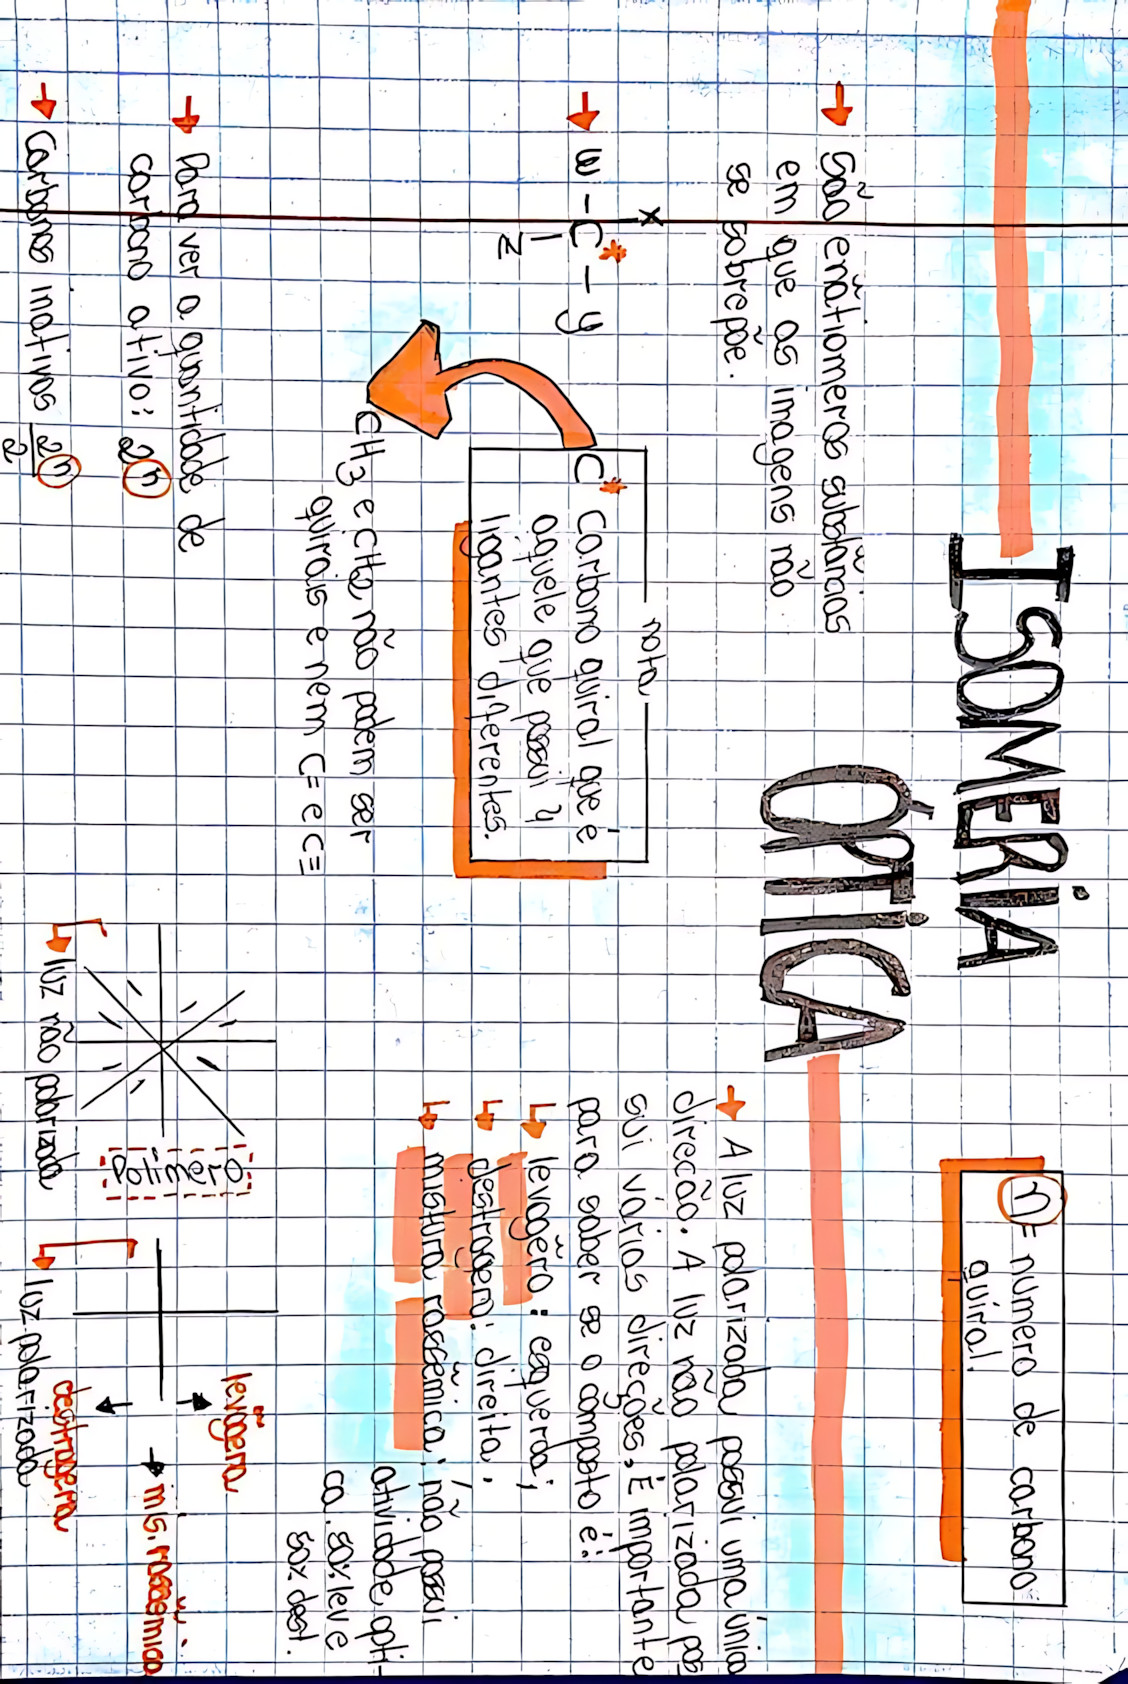 ISOMERIA
ÓPTICA
n = numero de carbono
quiral.
→ São enãtiomeros substãncias
em que as imagens não
se sobrepõe.
x
→ W - C* - y
|
z
nota
C* Carbono quiral que é
aquele que possui 4
ligantes diferentes.
CH3 e CH2 não podem ser
quirais e nem C= e C≡
→ Para ver a quantidade de
carbono ativo: 2n
→ Carbonos inativos 2n
2
→ A luz polarizada possui uma única
direcão. A luz não polarizada pos
sui várias direções. É importante
para saber se o composto é:
↳ levogẽro: esquerda;
↳ destrogero: direita;
↳ mistura rascẽmica: não possui
atividade opti-
ca. 50% lev e
50% dest.
Polimero
↳ luz não polarizada
levõgera
→ mis. rascẽmica
destrogera
↳ luz polarizada